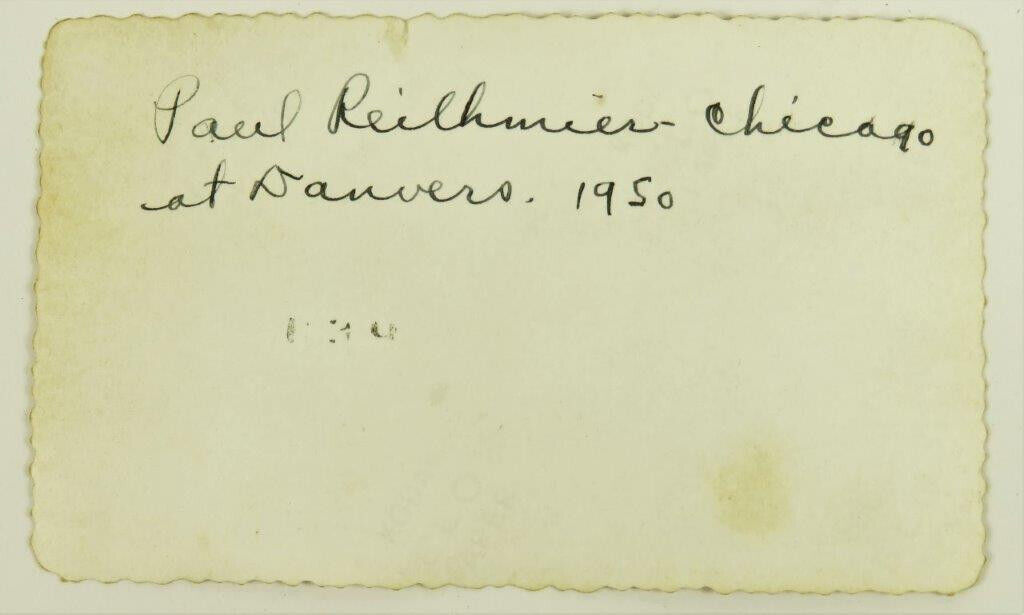 Paul Reilhmier - Chicago
at Danvers. 1950